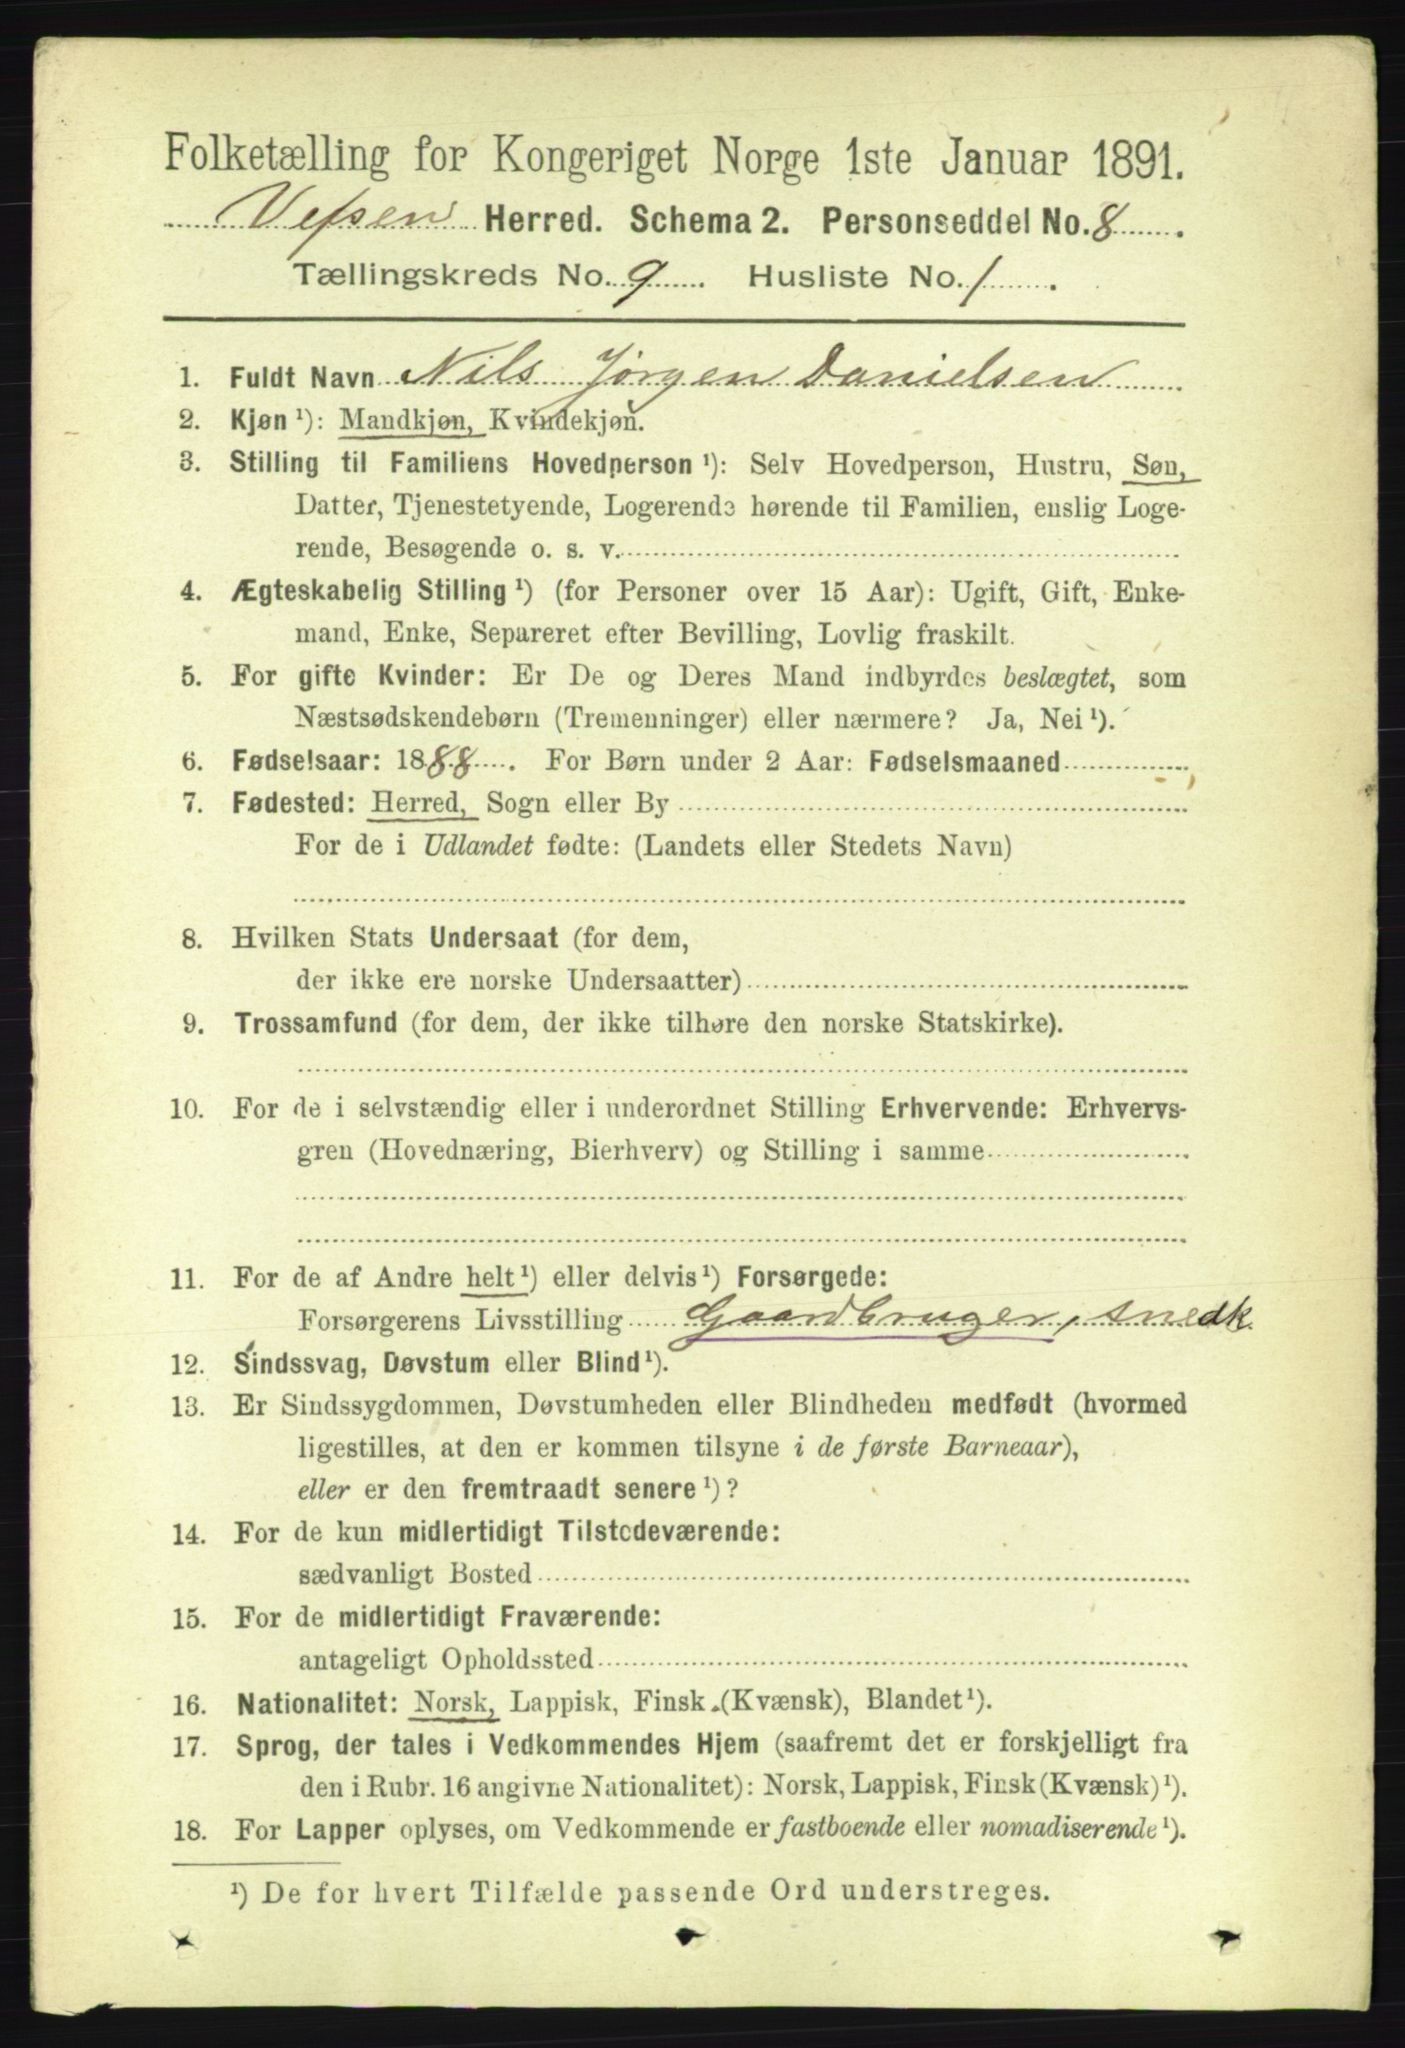 Folketælling for Kongeriget Norge 1ste Januar 1891.
Vefsen Herred. Schema 2. Personseddel No. 8
Tællingskreds No. 9. Husliste No. 1.
1. Fuldt Navn Nils Jørgen Danielsen
2. Kjøn ¹): Mandkjøn, Kvindekjøn.
3. Stilling til Familiens Hovedperson ¹): Selv Hovedperson, Hustru, Søn,
Datter, Tjenestetyende, Logerende hørende til Familien, enslig Loge-
rende, Besøgende o. s. v.
4. Ægteskabelig Stilling ¹) (for Personer over 15 Aar): Ugift, Gift, Enke-
mand, Enke, Separeret efter Bevilling, Lovlig fraskilt.
5. For gifte Kvinder: Er De og Deres Mand indbyrdes beslægtet, som
Næstsødskendebørn (Tremenninger) eller nærmere? Ja, Nei ¹).
6. Fødselsaar: 1888. For Børn under 2 Aar: Fødselsmaaned
7. Fødested: Herred, Sogn eller By
For de i Udlandet fødte: (Landets eller Stedets Navn)
8. Hvilken Stats Undersaat (for dem,
der ikke ere norske Undersaatter)
9. Trossamfund (for dem, der ikke tilhøre den norske Statskirke).
10. For de i selvstændig eller i underordnet Stilling Erhvervende: Erhvervs-
gren (Hovednæring, Bierhverv) og Stilling i samme
11. For de af Andre helt ¹) eller delvis ¹) Forsørgede:
Forsørgerens Livsstilling Gaardbruger, snedk.
12. Sindssvag, Døvstum eller Blind ¹).
13. Er Sindssygdommen, Døvstumheden eller Blindheden medfødt (hvormed
ligestilles, at den er kommen tilsyne i de første Barneaar),
eller er den fremtraadt senere ¹)?
14. For de kun midlertidigt Tilstedeværende:
sædvanligt Bosted
15. For de midlertidigt Fraværende:
antageligt Opholdssted
16. Nationalitet: Norsk, Lappisk, Finsk (Kvænsk), Blandet ¹).
17. Sprog, der tales i Vedkommendes Hjem (saafremt det er forskjelligt fra
den i Rubr. 16 angivne Nationalitet): Norsk, Lappisk, Finsk (Kvænsk) ¹).
18. For Lapper oplyses, om Vedkommende er fastboende eller nomadiserende ¹).
¹) De for hvert Tilfælde passende Ord understreges.